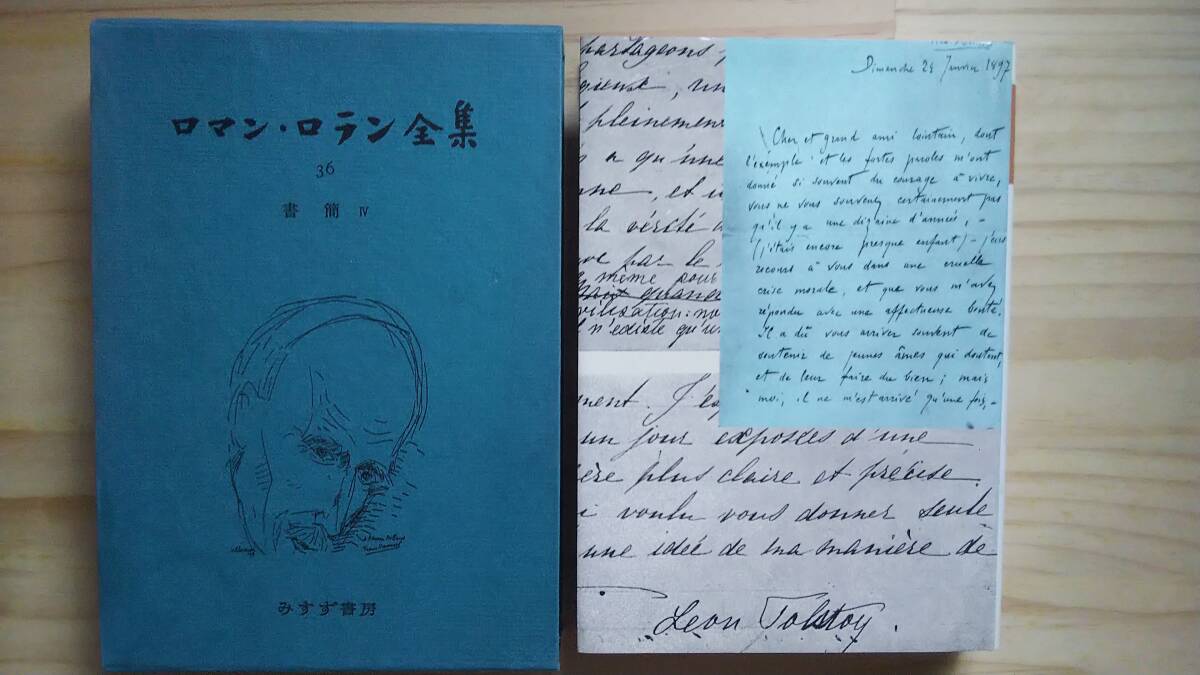 ロマン・ロラン全集
36
書簡 IV
みすず書房
partageons
gieuse, un
pleinement
a qu'une
nne, et
la vérité
par le
même pour
quand
vilisation
n'existe qu'un
Dimanche 24 Janvier 1897
Cher et grand ami lointain, dont
l'exemple et les fortes paroles m'ont
donné si souvent du courage à vivre,
vous ne vous souvenez certainement pas
qu'il y a une dizaine d'années, –
(j'étais encore presque enfant) – j'eus
recours à vous dans une cruelle
crise morale, et que vous m'avez
répondu avec une affectueuse bonté.
Il a dû vous arriver souvent de
soutenir de jeunes âmes qui doutent,
et de leur faire du bien ; mais
moi, il ne m'est arrivé qu'une fois, –
ment. J'es
un jour exposées d'une
ère plus claire et précise.
i voulu vous donner seule
une idée de ma manière de
Léon Tolstoy.